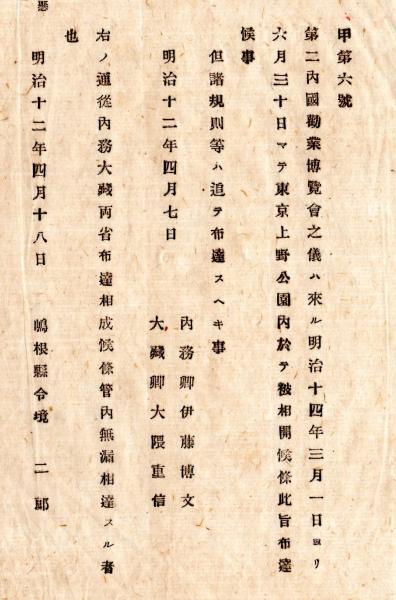 甲第六號
第二內國勸業博覽會之儀ハ來ル明治十四年三月一日ヨリ
六月三十日マテ東京上野公園內於テ被相開候條此旨布達
候事
但諸規則等ハ追テ布達スヘキ事
明治十二年四月七日
內務卿伊藤博文
大藏卿大隈重信
右ノ通從內務大藏兩省布達相成候條管內無漏相達スル者
也
明治十二年四月十八日
嶋根縣令境 二郎